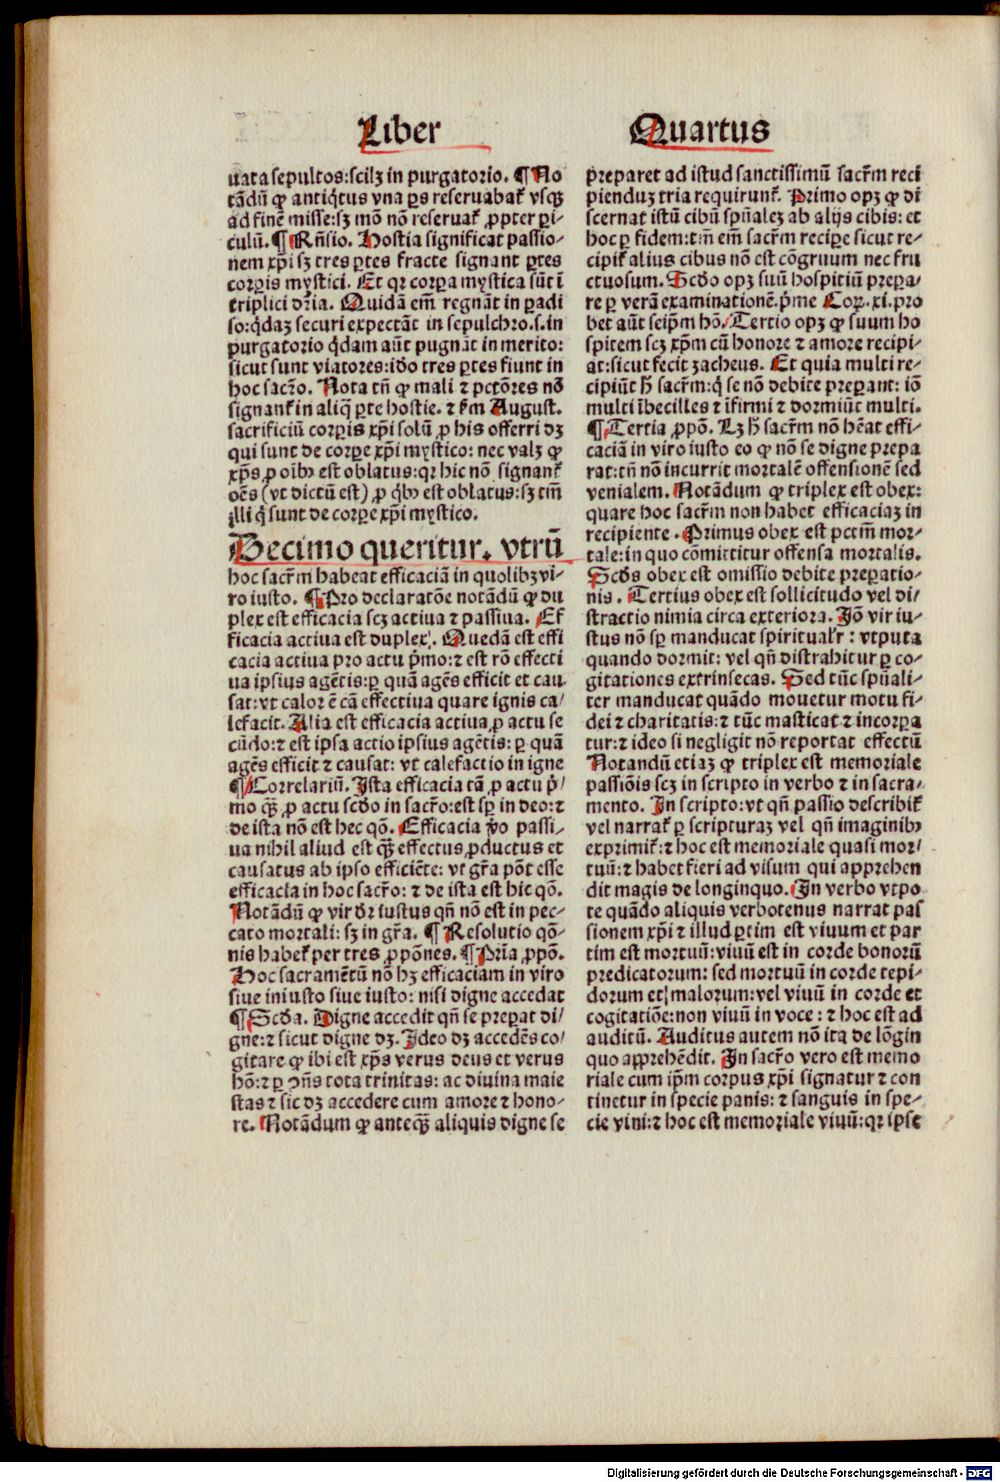 Liber Quartus
uata sepultos: scilꝫ in purgatorio. ¶ No
tādū ꝙ antiq̇tus vna ꝑs reseruabat̄ vsqꝫ
ad finē misse: sꝫ mō nō reseruat̄ ꝓpter ꝑi-
culū. ¶ Rn̄sio. Hostia significat passio-
nem xp̄i sꝫ tres ꝑtes fracte signant ꝑtes
corꝑis mystici. Et qꝛ corꝑa mystica sūt ī
triplici dr̄ia. Quidā em̄ regnāt in ꝑadi
so: q̇daꝫ securi expectāt in sepulchro .s. in
purgatorio q̇dam aūt pugnāt in merito:
sicut sunt viatores: iđo tres ꝑtes fiunt in
hoc sacr̄o. Nota tn̄ ꝙ mali ⁊ pctōres nō
signant̄ in aliq̄ ꝑte hostie. ⁊ ẜm August.
sacrificiū corꝑis xp̄i solū ꝓ his offerri dꝫ
qui sunt de corꝑe xp̄i mystico: nec valꝫ ꝙ
xp̄s ꝓ oībꝰ est oblatus: qꝛ hic nō signant̄
oēs (vt dictū est) ꝓ q̇bꝰ est oblatus: sꝫ tm̄
illi q̇ sunt de corꝑe xp̄i mystico.
Decimo queritur. vtrū
hoc sacr̄m habeat efficaciā in quolibꝫ vi-
ro iusto. ¶ Pro declaratōe notādū ꝙ du
plex est efficacia scꝫ actiua ⁊ passiua. Ef
ficacia actiua est duplex. Quedā est effi
cacia actiua pro actu p̄mo: ⁊ est rō effecti
ua ipsius agētis: ꝑ quā agēs efficit et cau
sat: vt calor ē cā effectiua quare ignis ca-
lefacit. Alia est efficacia actiua ꝓ actu se
cūdo: ⁊ est ipsa actio ipsius agētis: ꝑ quā
agēs efficit ⁊ causat: vt calefactio in igne
¶ Correlariū. Ista efficacia tā ꝓ actu p̄-
mo qꝫ̄ ꝓ actu scđo in sacr̄o: est sꝑ in deo: ⁊
de ista nō est hec qō. Efficacia v̄o passi-
ua nihil aliud est qꝫ̄ effectus ꝓductus et
causatus ab ipso efficiēte: vt gr̄a pōt esse
efficacia in hoc sacr̄o: ⁊ de ista est hic qō.
Notādū ꝙ vir dr̄ iustus qn̄ nō est in pec-
cato mortali: sꝫ in gr̄a. ¶ Resolutio qō-
nis habet̄ per tres ꝓpōnes. ¶ Pr̄ia ꝓpō.
Hoc sacramētū nō hꝫ efficaciam in viro
siue iniusto siue iusto: nisi digne accedat
¶ Scđa. Digne accedit qn̄ se preꝑat di-
gne: ⁊ sicut digne dꝫ. Ideo dꝫ accedēs co-
gitare ꝙ ibi est xp̄s verus deus et verus
hō: ⁊ ꝑ ↄn̄s tota trinitas: ac diuina maie
stas ⁊ sic dꝫ accedere cum amore ⁊ hono-
re. Notādum ꝙ anteqꝫ̄ aliquis digne se
preparet ad istud sanctissimū sacr̄m reci
pienduꝫ tria requirunt̄. Primo opꝫ ꝙ di
scernat istū cibū spūaleꝫ ab alijs cibis: et
hoc ꝑ fidem: tn̄ em̄ sacr̄m reciꝑe sicut re-
cipit̄ alius cibus nō est cōgruum nec fru
ctuosum. Scđo opꝫ suū hospitiū preꝑa-
re ꝑ verā examinationē. p̄me Coꝝ. xi. pro
bet aūt seip̄m hō. Tertio opꝫ ꝙ suum ho
spitem scꝫ xp̄m cū honore ⁊ amore recipi-
at: sicut fecit zacheus. Et quia multi re-
cipiūt h̄ sacr̄m: q̇ se nō debite preꝑant: iō
multi ībecilles ⁊ īfirmi ⁊ dormiūt multi.
¶ Tertia ꝓpō. Lꝫ h̄ sacr̄m nō hēat effi-
caciā in viro iusto eo ꝙ nō se digne prepa
rat: tn̄ nō incurrit mortalē offensionē sed
venialem. Notādum ꝙ triplex est obex:
quare hoc sacr̄m non habet efficaciaꝫ in
recipiente. Primus obex est pctm̄ mor-
tale: in quo cōmittitur offensa mortalis.
Scđs obex est omissio debite preꝑatio-
nis. Tertius obex est sollicitudo vel di-
stractio nimia circa exteriora. Iō vir iu-
stus nō sꝑ manducat spiritualr̄: vtputa
quando dormit: vel qn̄ distrahitur ꝑ co-
gitationes extrinsecas. Sed tūc spūali-
ter manducat quādo mouetur motu fi-
dei ⁊ charitatis: ⁊ tūc masticat ⁊ incorꝑa
tur: ⁊ ideo si negligit nō reportat effectū
Notandū etiaꝫ ꝙ triplex est memoriale
passiōis scꝫ in scripto in verbo ⁊ in sacra-
mento. In scripto: vt qn̄ passio describit̄
vel narrat̄ ꝑ scripturaꝫ vel qn̄ imaginibꝰ
exprimit̄: ⁊ hoc est memoriale quasi mor-
tuū: ⁊ habet fieri ad visum qui apprehen
dit magis de longinquo. In verbo vtpo
te quādo aliquis verbotenus narrat pas
sionem xp̄i ⁊ illud ꝑtim est viuum et par
tim est mortuū: viuū est in corde bonorū
predicatorum: sed mortuū in corde tepi-
dorum et malorum: vel viuū in corde et
cogitatiōe: non viuū in voce: ⁊ hoc est ad
auditū. Auditus autem nō ita de lōgin
quo apprehēdit. In sacr̄o vero est memo
riale cum ip̄m corpus xp̄i signatur ⁊ con
tinetur in specie panis: ⁊ sanguis in spe-
cie vini: ⁊ hoc est memoriale viuū: qꝛ ipse
Digitalisierung gefördert durch die Deutsche Forschungsgemeinschaft - DFG